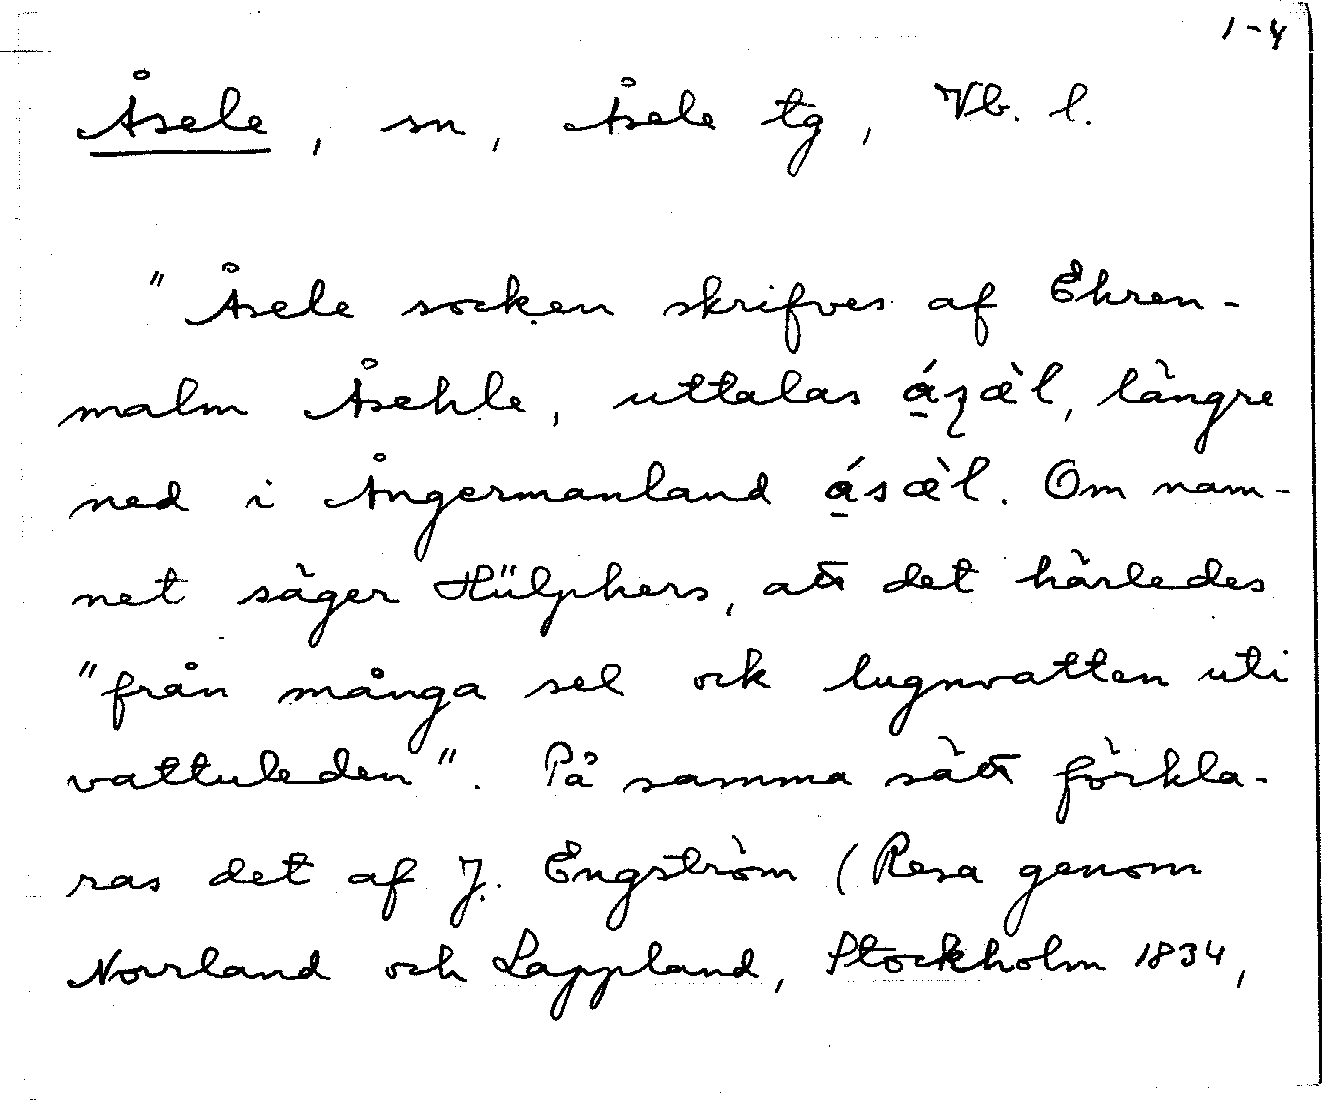 1-4
Åsele, sn, Åsele tg, Vb. l.
"Åsele socken skrifves af Ehren-
malm Åsehle, uttalas á̱ȥæ̀l, längre
ned i Ångermanland á̱sæ̀l. Om nam-
net säger Hülphers, att det härledes
"från många sel ock lugnvatten uti
vattuleden". På samma sätt förkla-
ras det af J. Engström (Resa genom
Norrland och Lappland, Stockholm 1834,